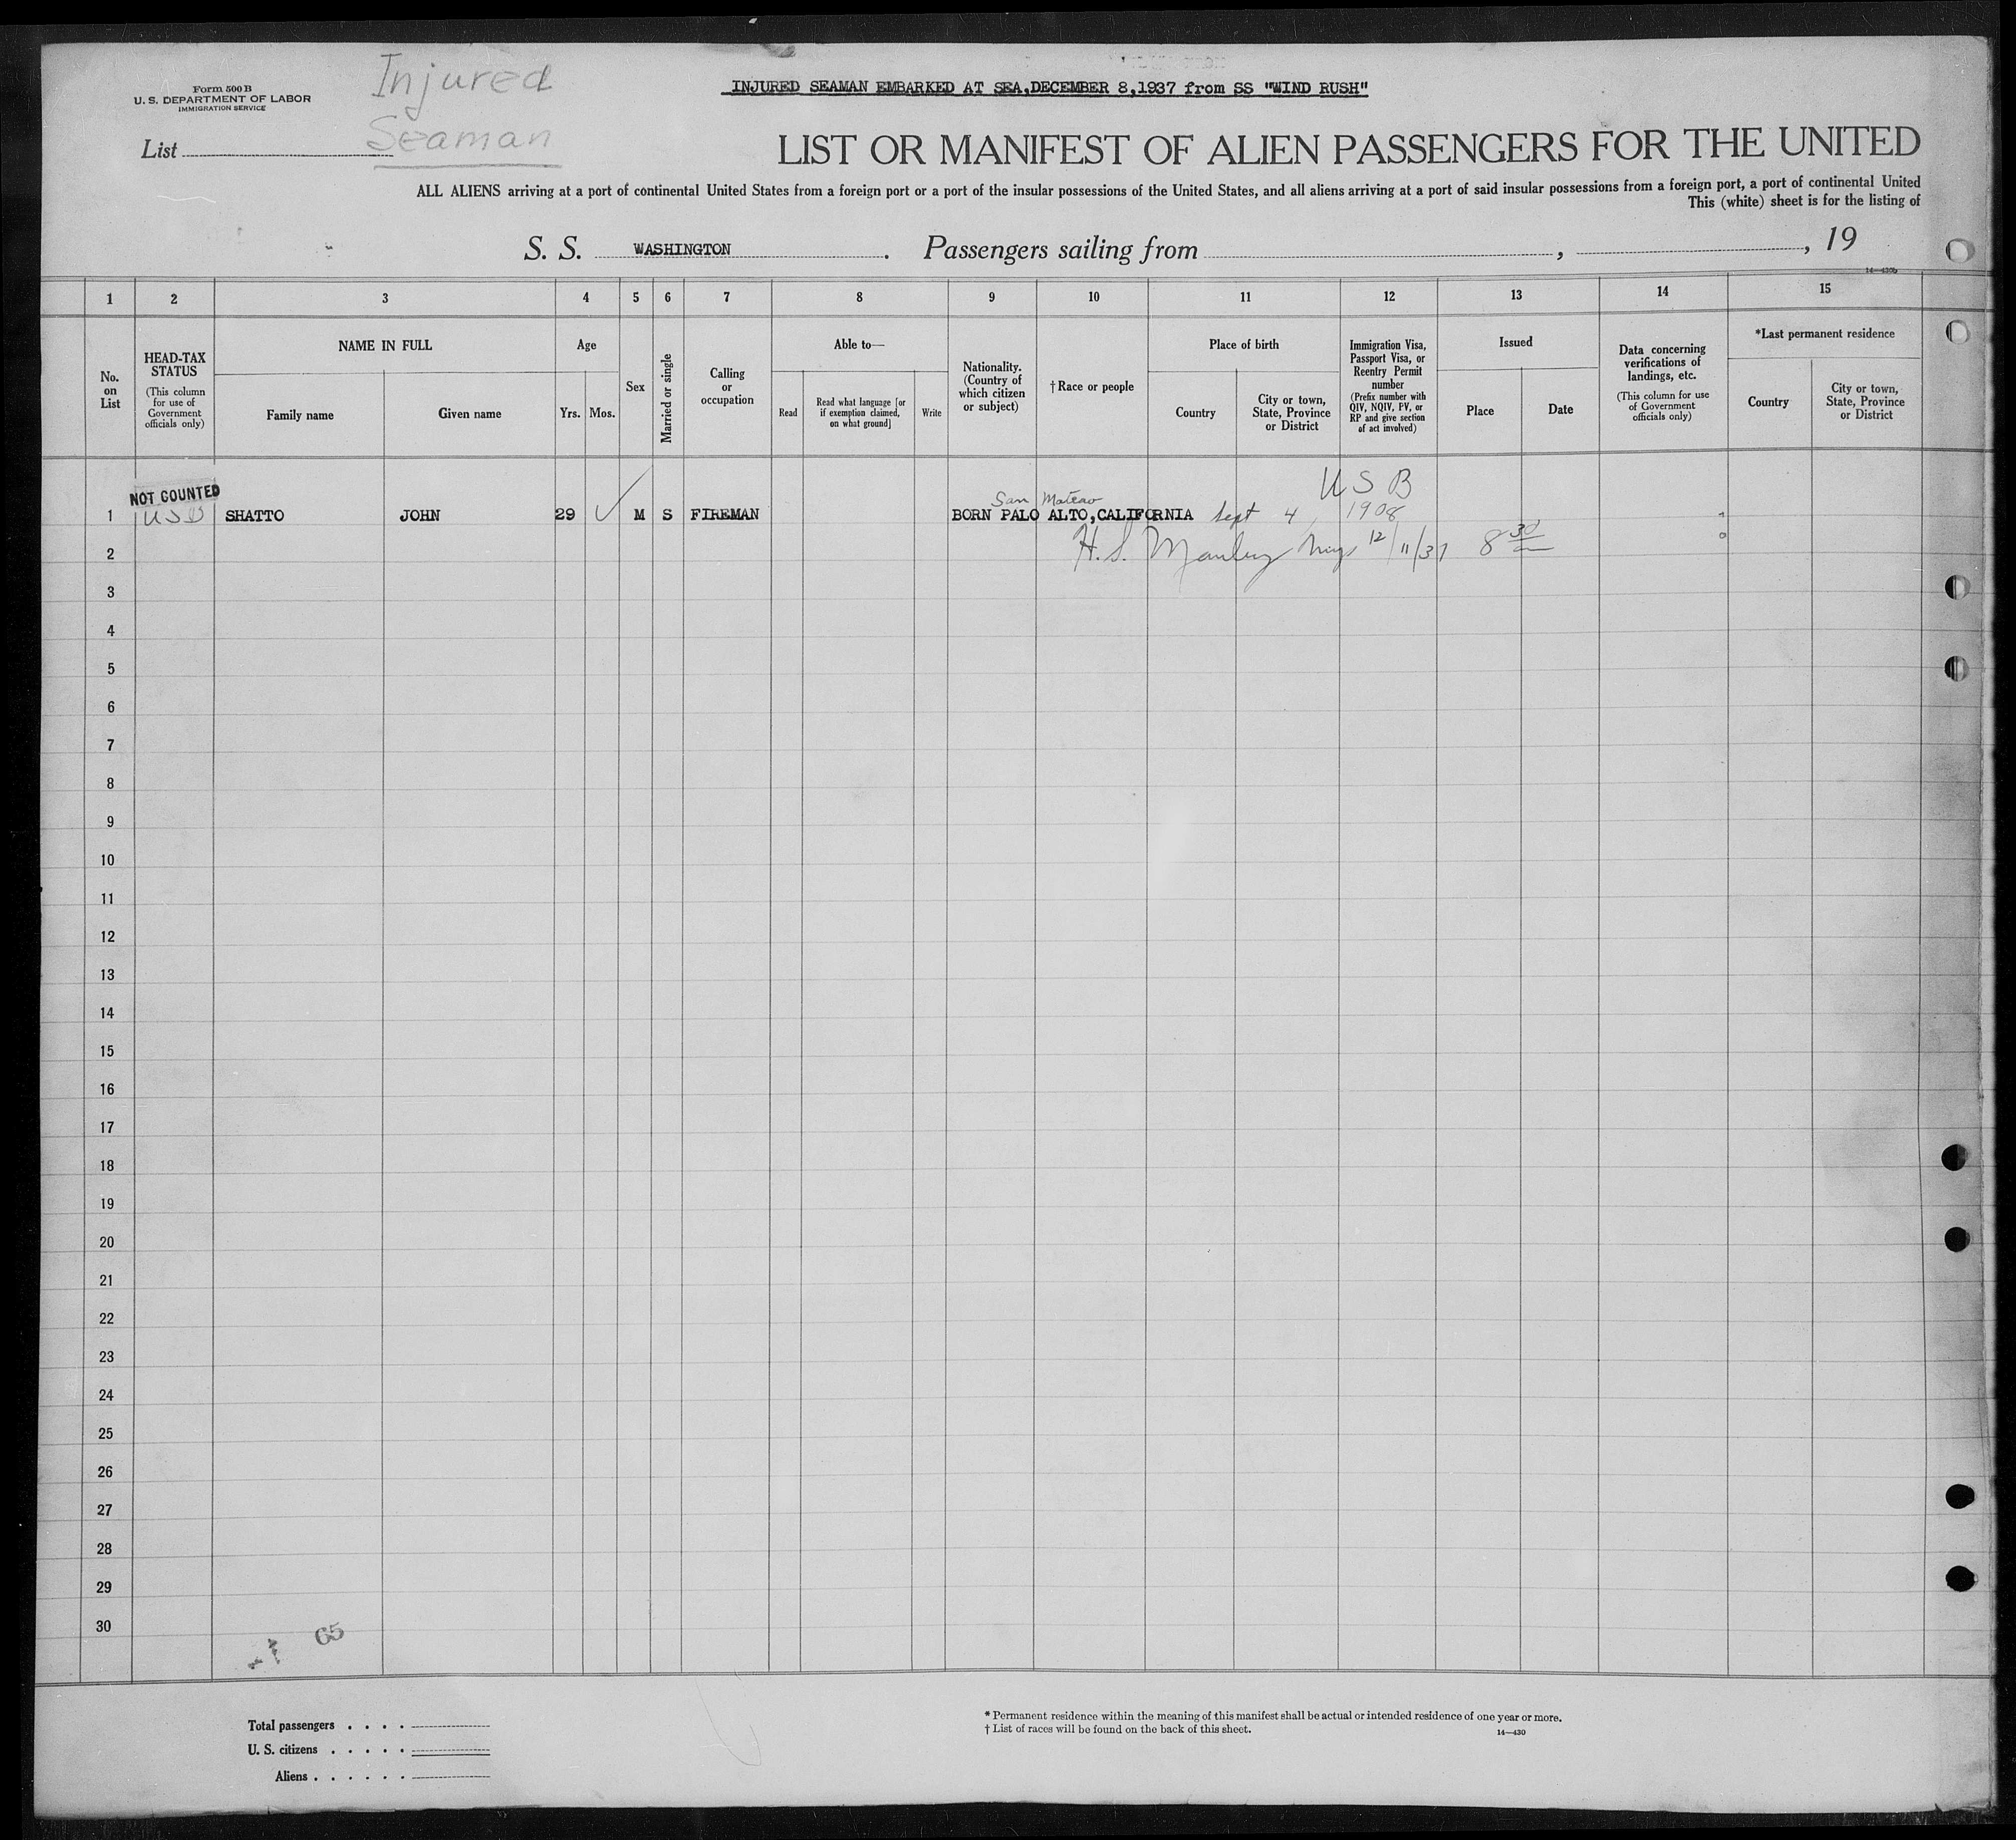 Injured
Seaman
Form 500 B
U. S. DEPARTMENT OF LABOR
IMMIGRATION SERVICE
INJURED SEAMAN EMBARKED AT SEA,DECEMBER 8,1937 from SS "WIND RUSH"
List
LIST OR MANIFEST OF ALIEN PASSENGERS FOR THE UNITED
ALL ALIENS arriving at a port of continental United States from a foreign port or a port of the insular possessions of the United States, and all aliens arriving at a port of said insular possessions from a foreign port, a port of continental United
This (white) sheet is for the listing of
S. S. WASHINGTON . Passengers sailing from , , 19
14—430b
1 2 3 4 5 6 7 8 9 10 11 12 13 14 15
No. on List
HEAD-TAX STATUS
(This column for use of Government officials only)
NAME IN FULL
Family name
Given name
Age
Yrs. Mos.
Sex
Married or single
Calling or occupation
Able to—
Read
Read what language [or if exemption claimed, on what ground]
Write
Nationality. (Country of which citizen or subject)
†Race or people
Place of birth
Country
City or town, State, Province or District
Immigration Visa, Passport Visa, or Reentry Permit number
(Prefix number with QIV, NQIV, PV, or RP and give section of act involved)
Issued
Place
Date
Data concerning verifications of landings, etc.
(This column for use of Government officials only)
*Last permanent residence
Country
City or town, State, Province or District
NOT COUNTED
U S B
San Mateao
1 USB SHATTO JOHN 29 M S FIREMAN BORN PALO ALTO,CALIFORNIA Sept 4, 1908
2 H. S. 12/11/37 8 30
3
4
5
6
7
8
9
10
11
12
13
14
15
16
17
18
19
20
21
22
23
24
25
26
27
28
29
30
65
Total passengers . . . .
U. S. citizens . . . . .
Aliens . . . . . .
* Permanent residence within the meaning of this manifest shall be actual or intended residence of one year or more.
† List of races will be found on the back of this sheet.
14—430